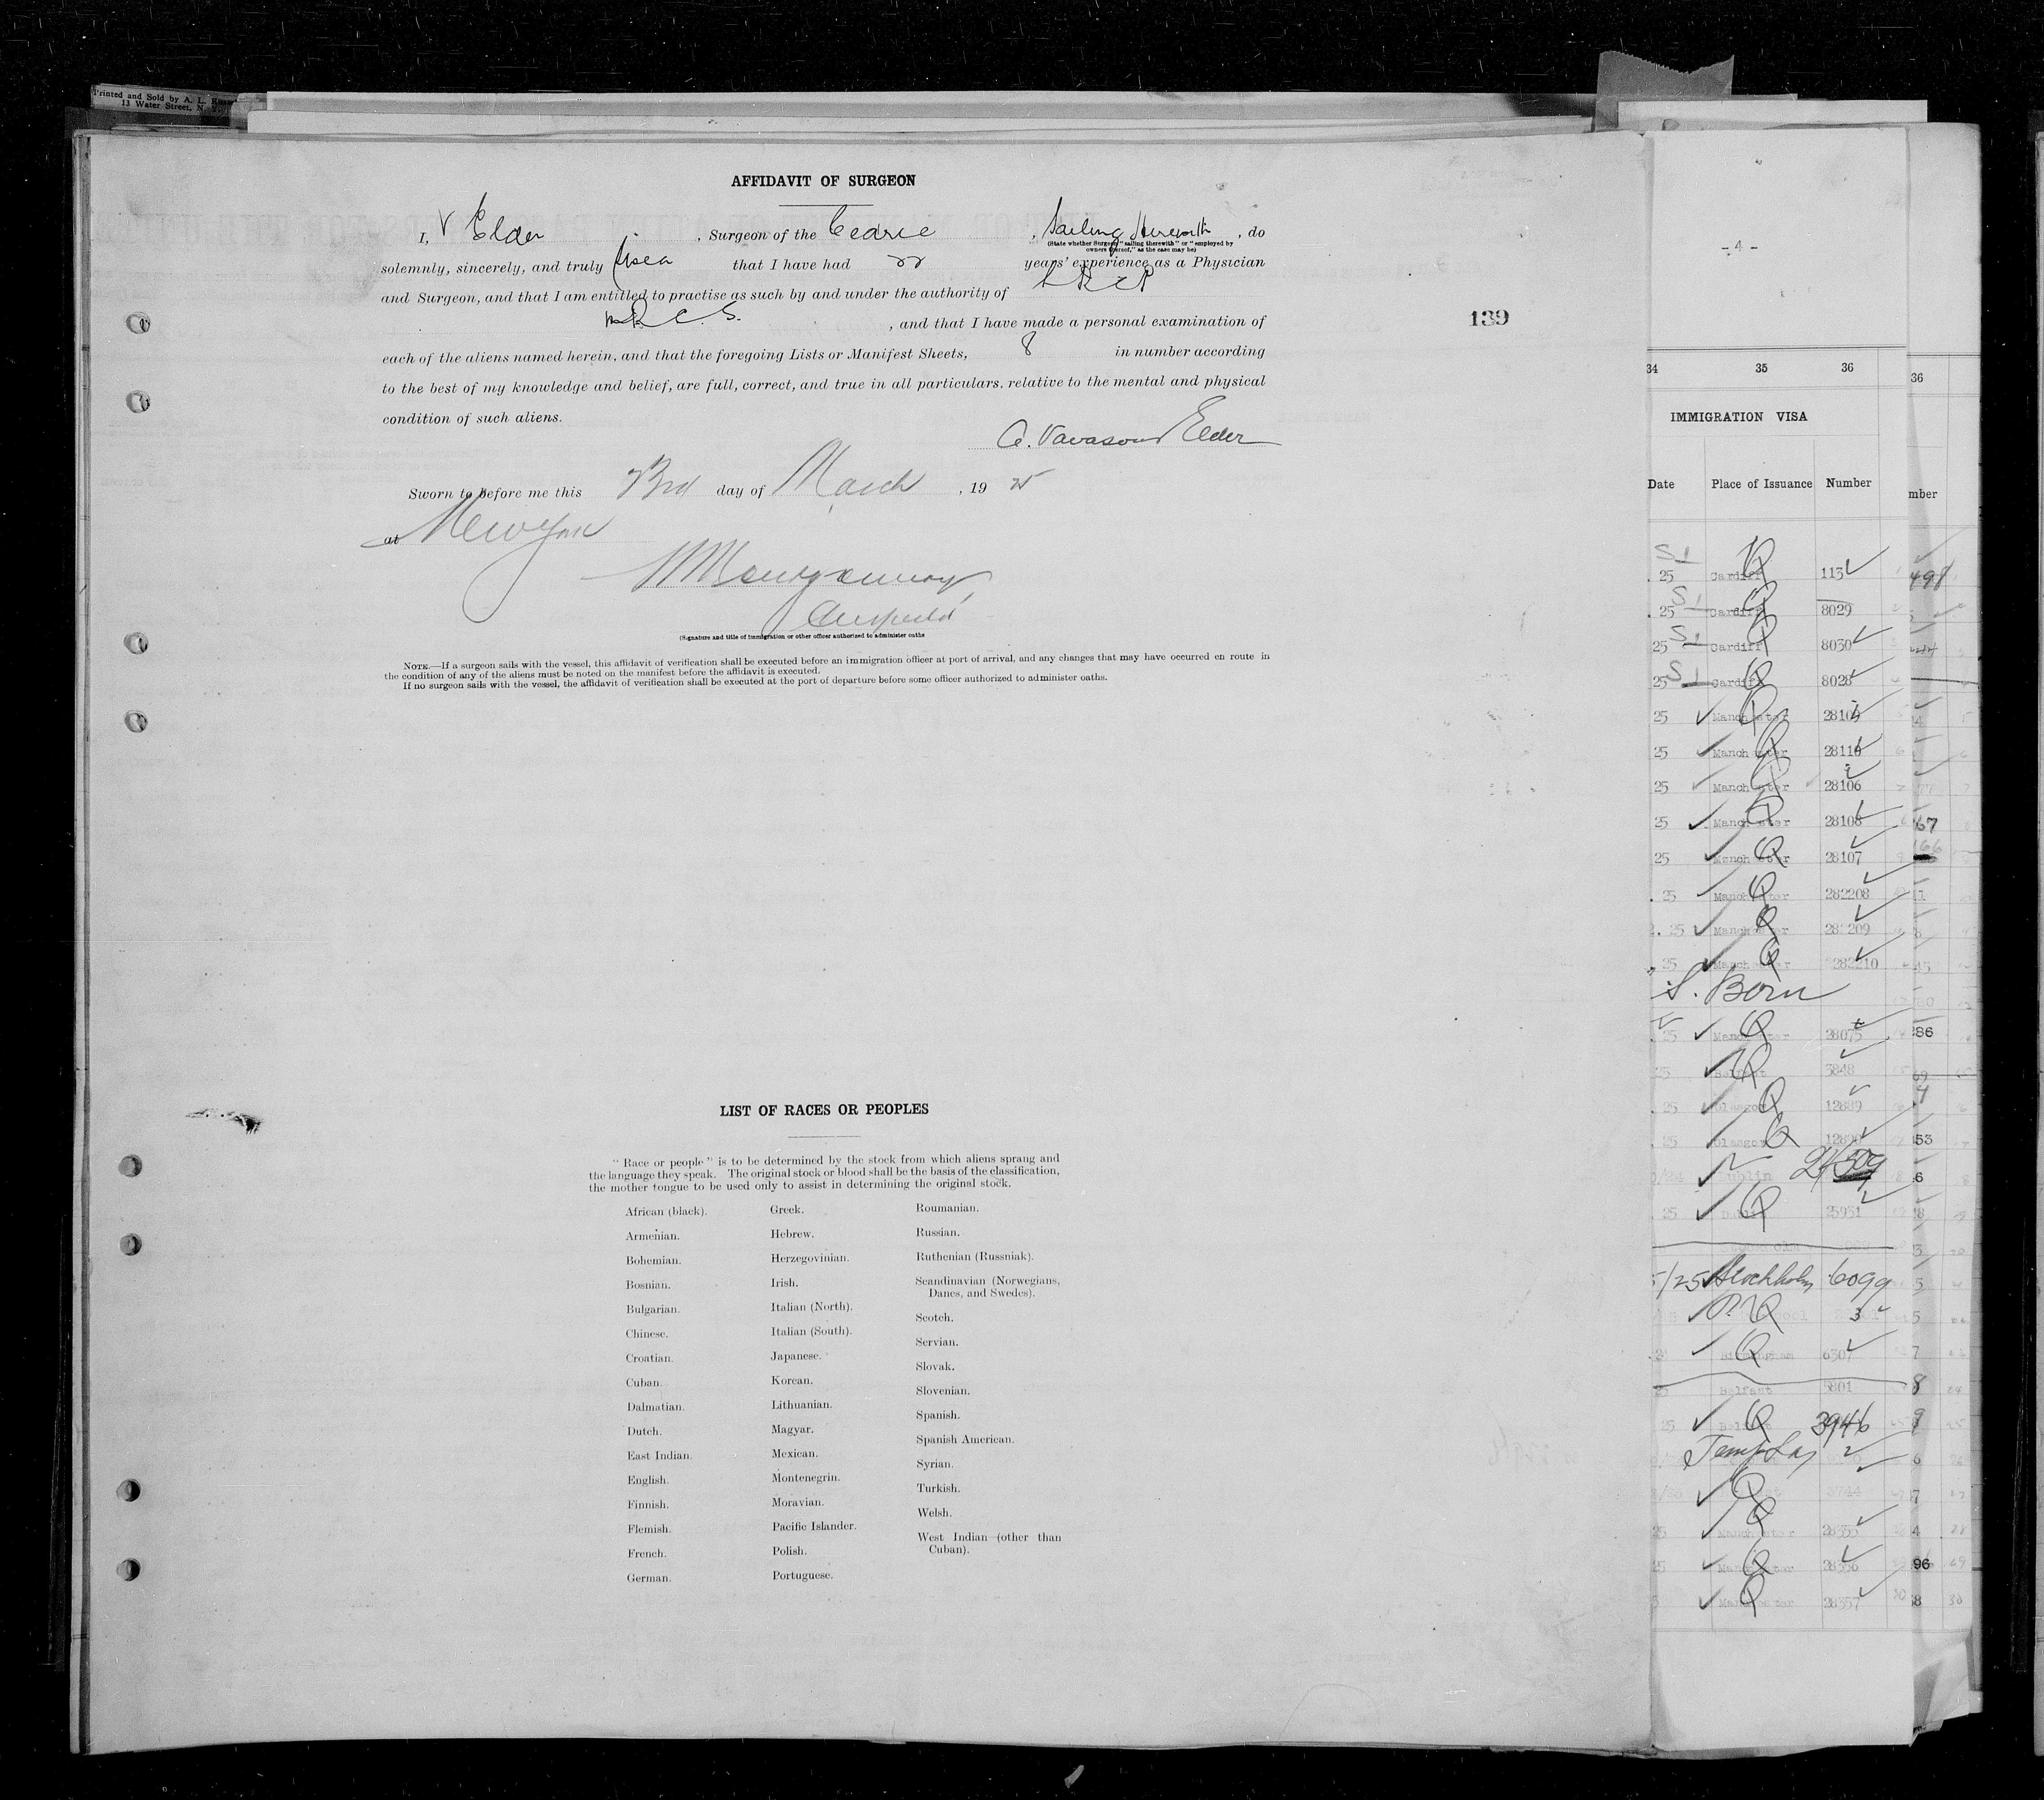 Printed and Sold by A. L.
13 Water Street, N. Y.
AFFIDAVIT OF SURGEON
I, V Elder , Surgeon of the Cedric , Sailing therewith , do
(State whether Surgeon "sailing therewith" or "employed by
owners thereof," as the case may be)
solemnly, sincerely, and truly that I have had 22 years' experience as a Physician
and Surgeon, and that I am entitled to practise as such by and under the authority of L R C P
M R C. S. , and that I have made a personal examination of
139
each of the aliens named herein, and that the foregoing Lists or Manifest Sheets, 8 in number according
to the best of my knowledge and belief, are full, correct, and true in all particulars, relative to the mental and physical
condition of such aliens.
A. Vavasour Elder
Sworn to before me this 3rd day of March , 19 25
at New York
Montgomery
(Signature and title of immigration or other officer authorized to administer oaths
NOTE.—If a surgeon sails with the vessel, this affidavit of verification shall be executed before an immigration officer at port of arrival, and any changes that may have occurred en route in
the condition of any of the aliens must be noted on the manifest before the affidavit is executed.
If no surgeon sails with the vessel, the affidavit of verification shall be executed at the port of departure before some officer authorized to administer oaths.
LIST OF RACES OR PEOPLES
"Race or people" is to be determined by the stock from which aliens sprang and
the language they speak. The original stock or blood shall be the basis of the classification,
the mother tongue to be used only to assist in determining the original stock.
African (black).
Armenian.
Bohemian.
Bosnian.
Bulgarian.
Chinese.
Croatian.
Cuban.
Dalmatian.
Dutch.
East Indian.
English.
Finnish.
Flemish.
French.
German.
Greek.
Hebrew.
Herzegovinian.
Irish.
Italian (North).
Italian (South).
Japanese.
Korean.
Lithuanian.
Magyar.
Mexican.
Montenegrin.
Moravian.
Pacific Islander.
Polish.
Portuguese.
Roumanian.
Russian.
Ruthenian (Russniak).
Scandinavian (Norwegians,
Danes, and Swedes).
Scotch.
Servian.
Slovak.
Slovenian.
Spanish.
Spanish American.
Syrian.
Turkish.
Welsh.
West Indian (other than
Cuban).
- 4 -
34 35 36
36
IMMIGRATION VISA
Date Place of Issuance Number
mber
S1
25 Cardiff Q 113
498
S1
25 Cardiff Q 8029
S1
25 Cardiff Q 8030
S1
25 Cardiff Q 8028
25 Manchester Q 28109
25 Manchester Q 28110
25 Manchester Q 28106
25 Manchester Q 28108
67
25 Manchester Q 28107
166
25 Manchester Q 282208
25 Manchester Q 282209
25 Manchester Q 282210
S. Born
25 Manchester Q 28075
286
25 Belfast Q 3848
69
25 Glasgow Q 12889
25 Glasgow Q
53
Dublin
6
25 Dublin Q 25931
5/25 Stockholm 6099
Q 3
Birmingham Q 6307
7
25 Belfast 5801
8
25 Belfast Q 3946
9
6
Q 3744
25 Manchester Q 28355
4
25 Manchester Q 28356
96
Manchester Q 28357
30